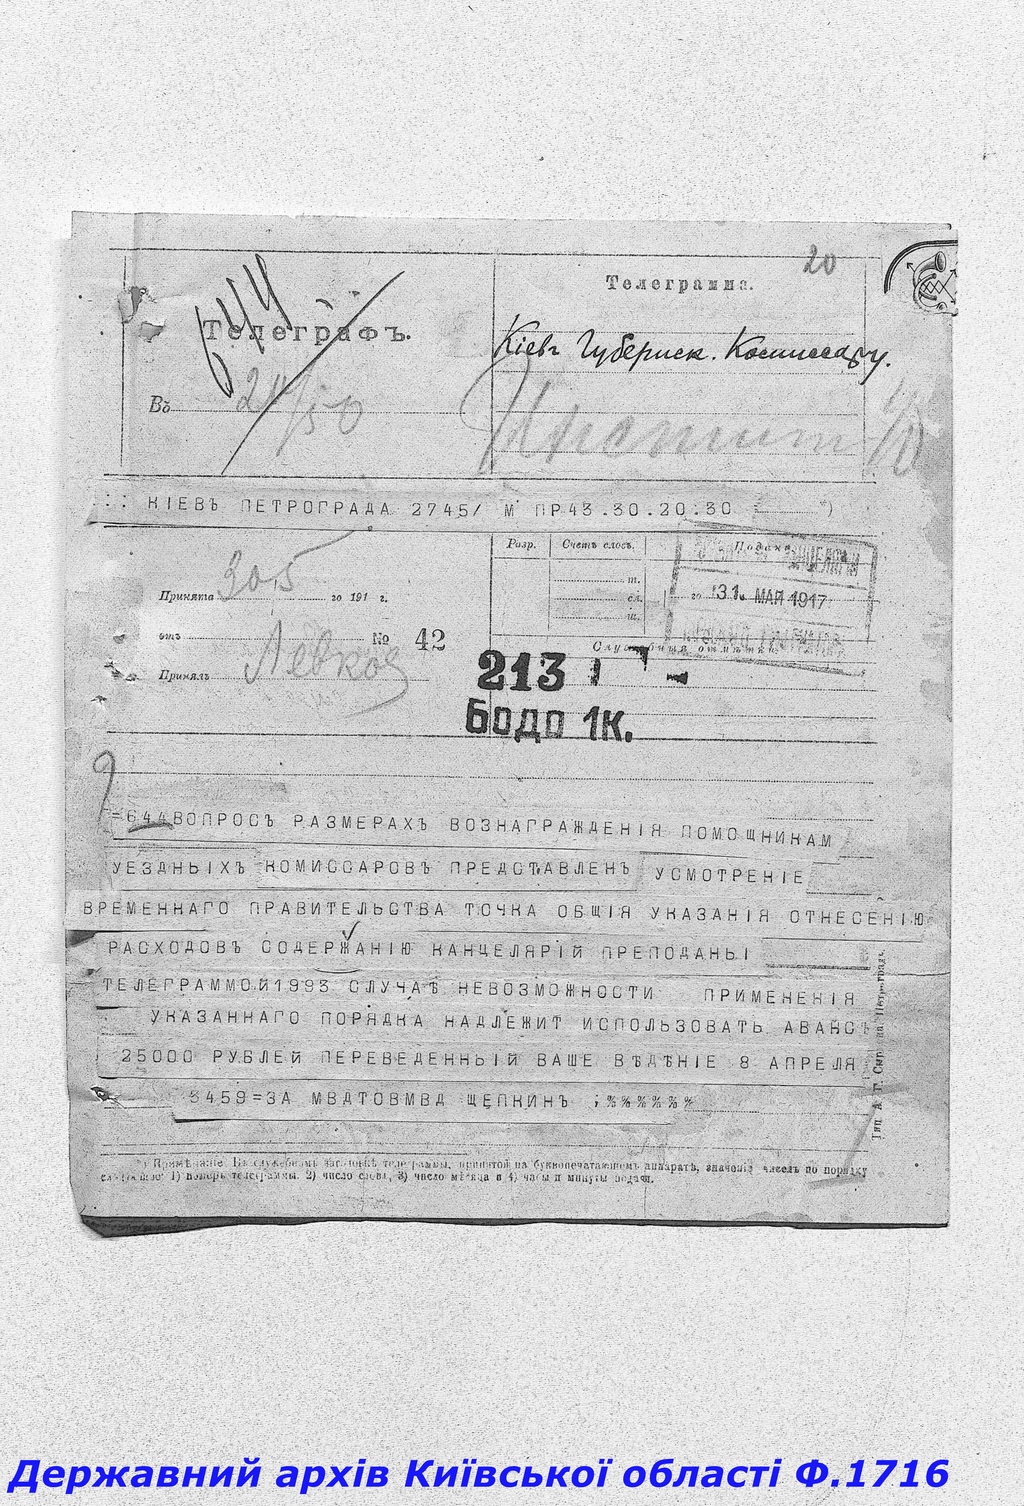 20
Телеграмма.
644
Телеграфъ.
Кіевъ Губернск. Комиссару.
Въ
КІЕВЪ ПЕТРОГРАДА 2745/ М ПР43.30.20:30 *)
Разр.
Счетъ словъ.
Подана
Принята 30.5 го 191 г.
го
31. МАЙ 1917
отъ № 42
Служебныя отмѣтки
213
Принялъ
БОДО 1К.
=644ВОПРОСЪ РАЗМЕРАХЪ ВОЗНАГРАЖДЕНІЯ ПОМОЩНИКАМ
УЕЗДНЫХЪ КОМИССАРОВЪ ПРЕДСТАВЛЕНЪ УСМОТРЕНІЕ
ВРЕМЕННАГО ПРАВИТЕЛЬСТВА ТОЧКА ОБЩІЯ УКАЗАНІЯ ОТНЕСЕНІЮ
РАСХОДОВЪ СОДЕРЖАНІЮ КАНЦЕЛЯРІЙ ПРЕПОДАНЫ
ТЕЛЕГРАММОЙ1993 СЛУЧАѢ НЕВОЗМОЖНОСТИ ПРИМЕНЕНІЯ
УКАЗАННАГО ПОРЯДКА НАДЛЕЖИТ ИСПОЛЬЗОВАТЬ АВАНСЪ
25000 РУБЛЕЙ ПЕРЕВЕДЕННЫЙ ВАШЕ ВѢДѢНІЕ 8 АПРЕЛЯ
3459=ЗА МВДТОВМВД ЩЕПКИНЪ ;%%%%%%
*) Примѣчаніе Въ служебномъ заголовкѣ телеграммы, принятой на буквопечатающемъ аппаратѣ, значенія чиселъ по порядку
слѣдующія: 1) номеръ телеграммы. 2) число словъ, 3) число мѣсяца и 4) часы и минуты подачи.
Державний архів Київської області Ф.1716